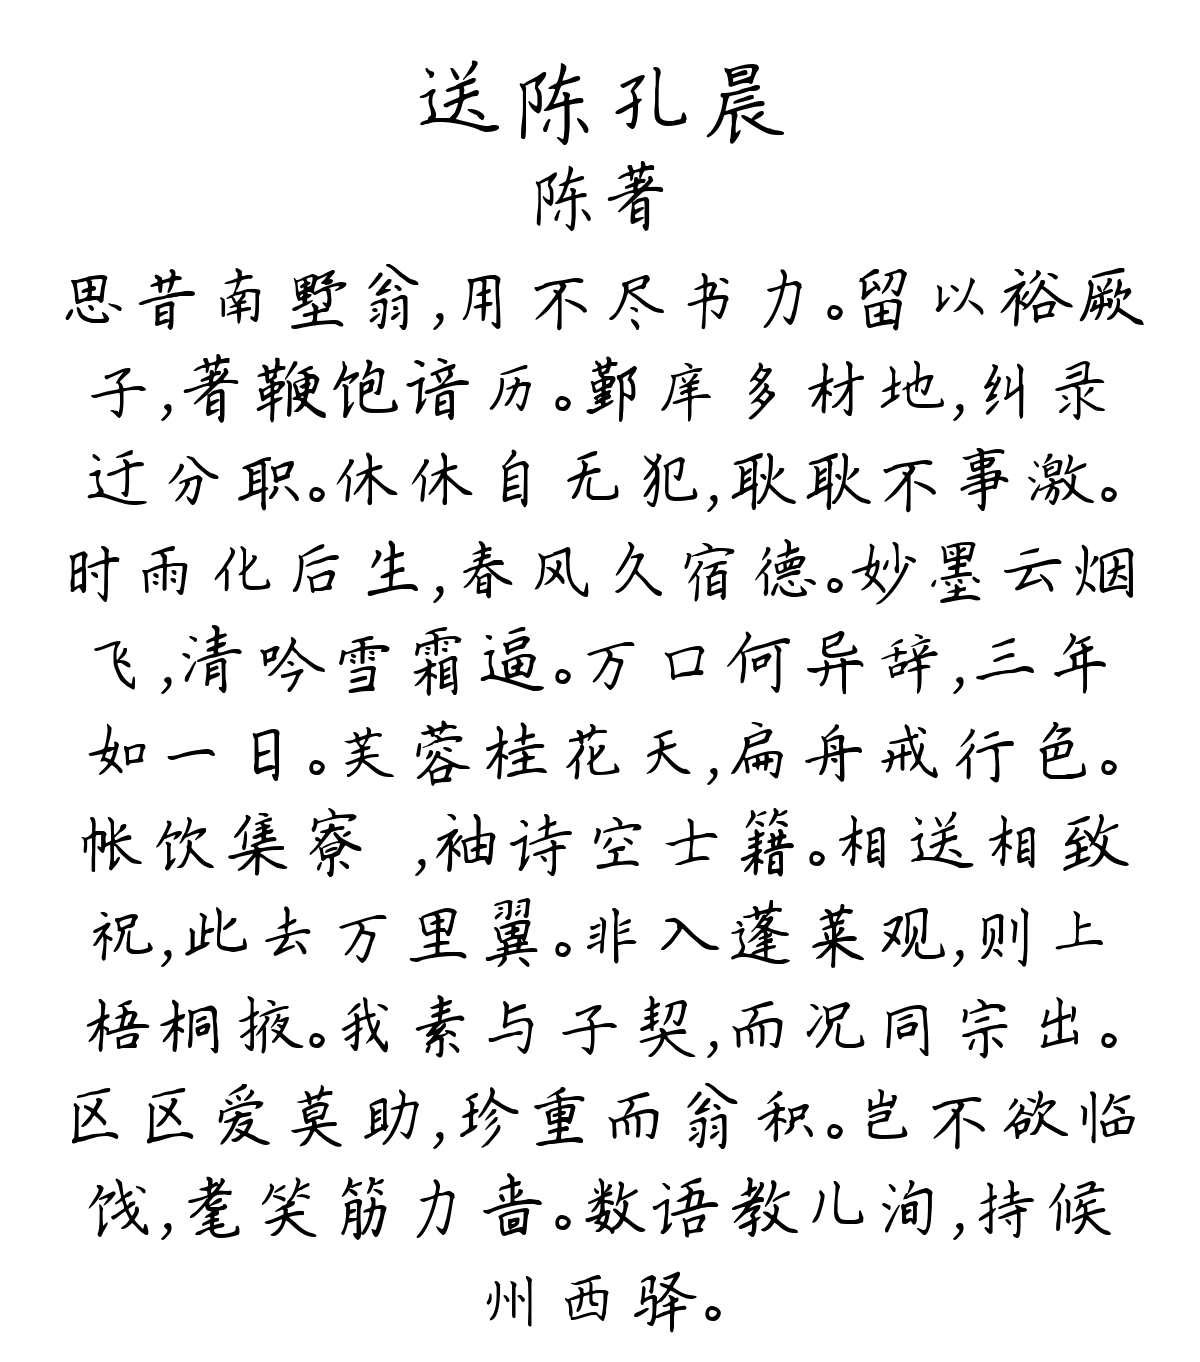 送陈孔晨
陈著
思昔南墅翁,用不尽书力。留以裕厥
子,著鞭饱谙历。鄞庠多材地,纠录
迁分职。休休自无犯,耿耿不事激。
时雨化后生,春风久宿德。妙墨云烟
飞,清吟雪霜逼。万口何异辞,三年
如一日。芙蓉桂花天,扁舟戒行色。
帐饮集寮 ,袖诗空士籍。相送相致
祝,此去万里翼。非入蓬莱观,则上
梧桐掖。我素与子契,而况同宗出。
区区爱莫助,珍重而翁积。岂不欲临
饯,耄笑筋力啬。数语教儿洵,持候
州西驿。